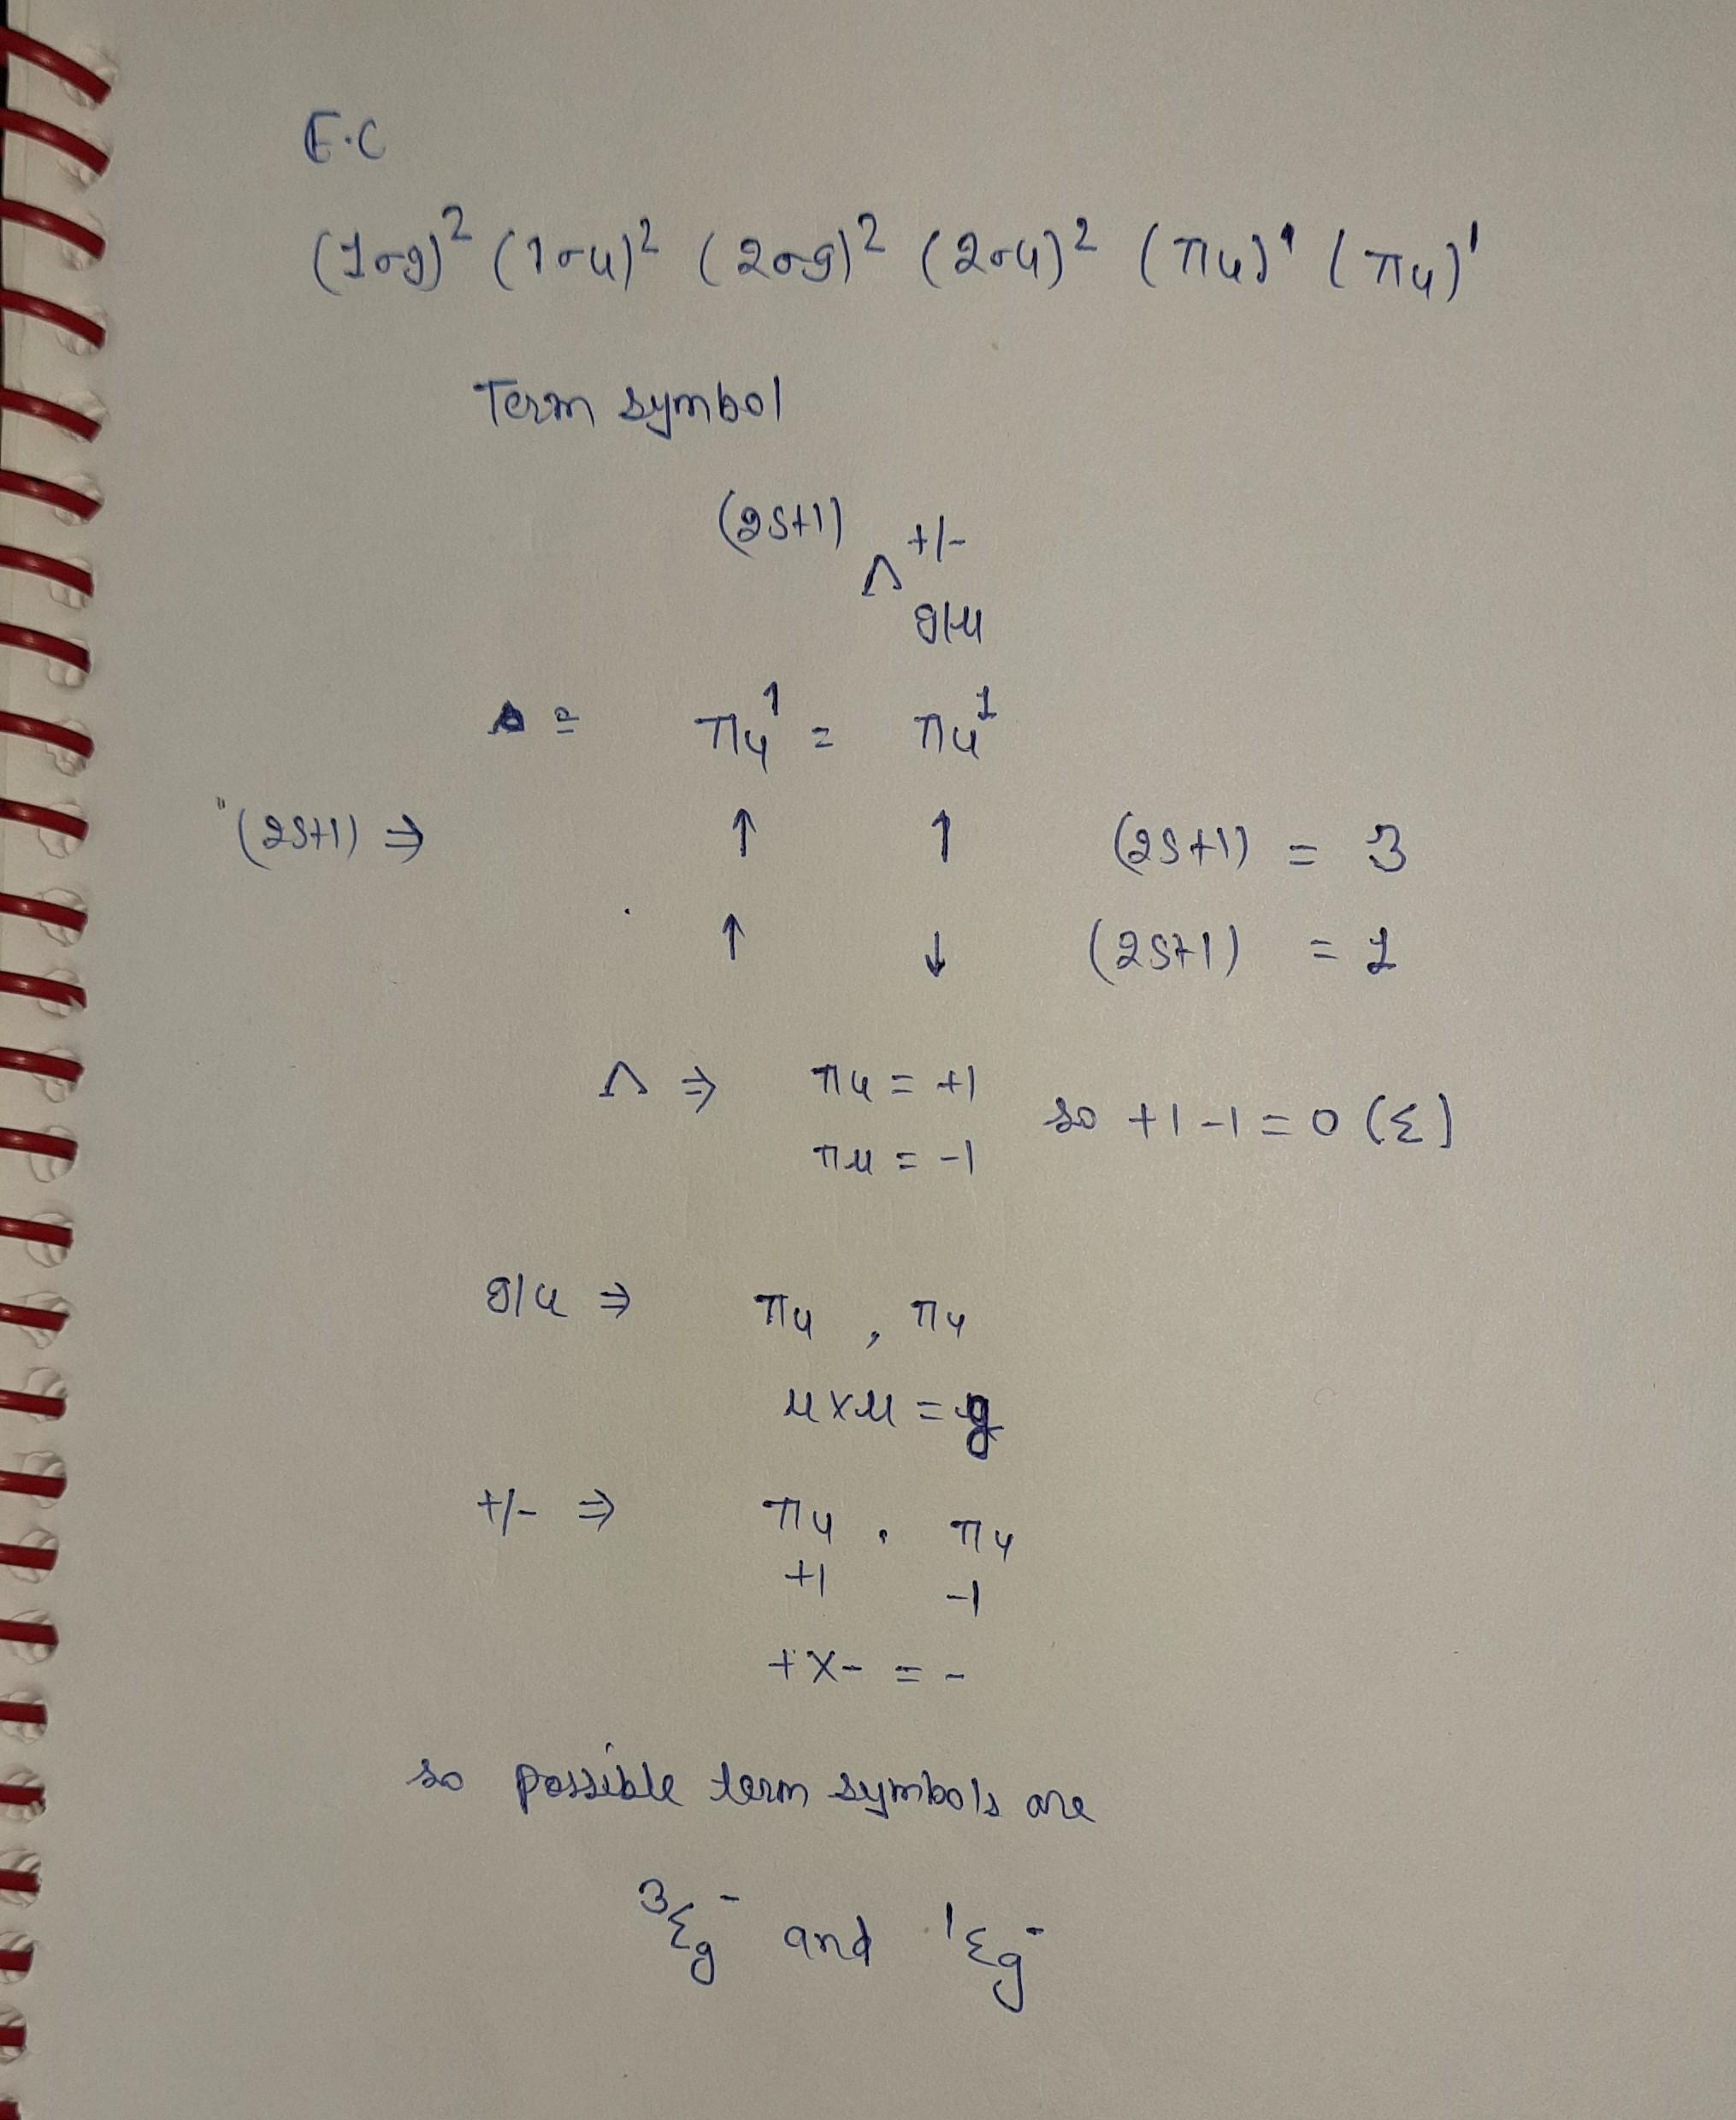 E.C
(1σg)² (1σu)² (2σg)² (2σu)² (πu)¹ (πu)¹
Term symbol
(2S+1) Λ +/- g/u
= πu¹ = πu¹
(2S+1) ⇒ ↑ ↑ (2S+1) = 3
↑ ↓ (2S+1) = 1
Λ ⇒ πu = +1 so +1-1=0 (Σ)
πu = -1
g/u ⇒ πu , πu
u×u = g
+/- ⇒ πu . πu
+1 -1
+×- = -
so possible term symbols are
³Σg⁻ and ¹Σg⁻